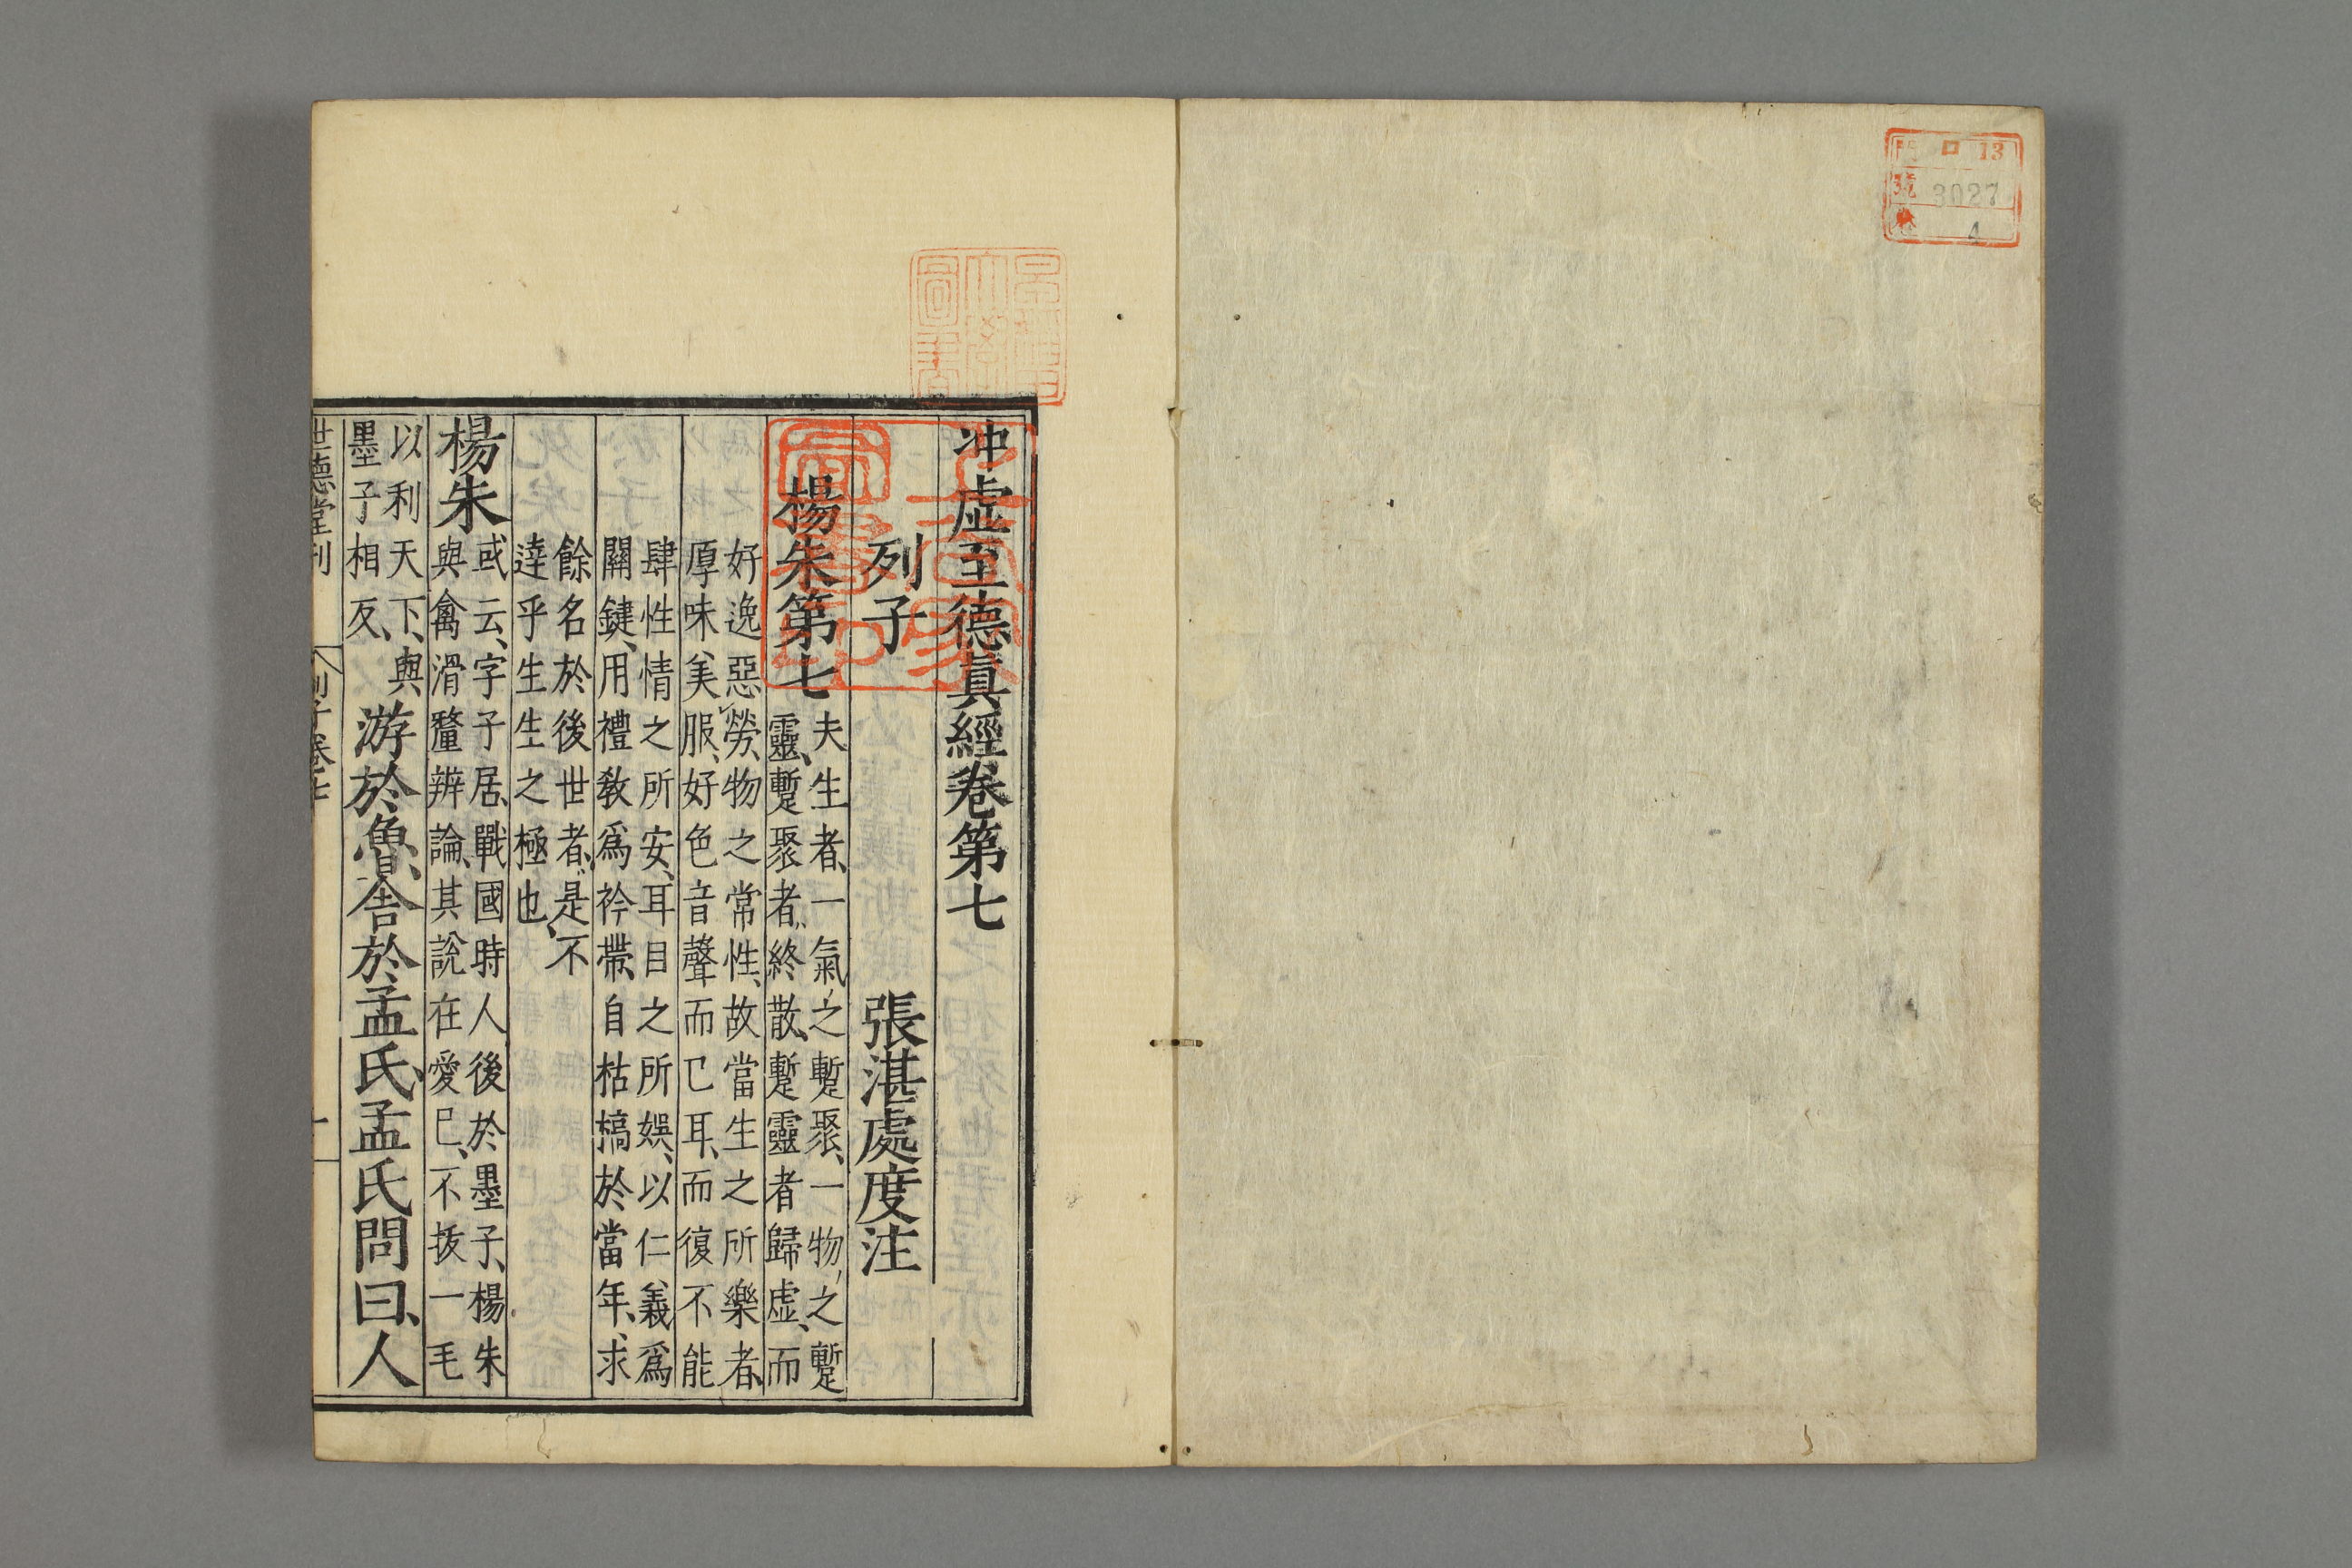 門 口 13
號 3027
卷 4
冲虛至德眞經卷第七
列子 張湛處度注
楊朱第七
夫生者、一氣之蹔聚、一物之蹔
靈、蹔聚者、終散、蹔靈者歸虛、而
好逸惡勞、物之常性、故當生之所樂者、
厚味、美服、好色音聲而已耳、而復不能
肆性情之所安、耳目之所娛、以仁義爲
關鍵、用禮敎爲衿帶、自枯槁於當年、求
餘名於後世者、是不
達乎生生之極也、
楊朱
或云、字子居、戰國時人後於墨子、楊朱
與禽滑釐辨論、其說在愛己、不拔一毛
以利天下、與
墨子相反、
游於魯、舍於孟氏、孟氏問曰、人
世德堂刊 列子卷七 一